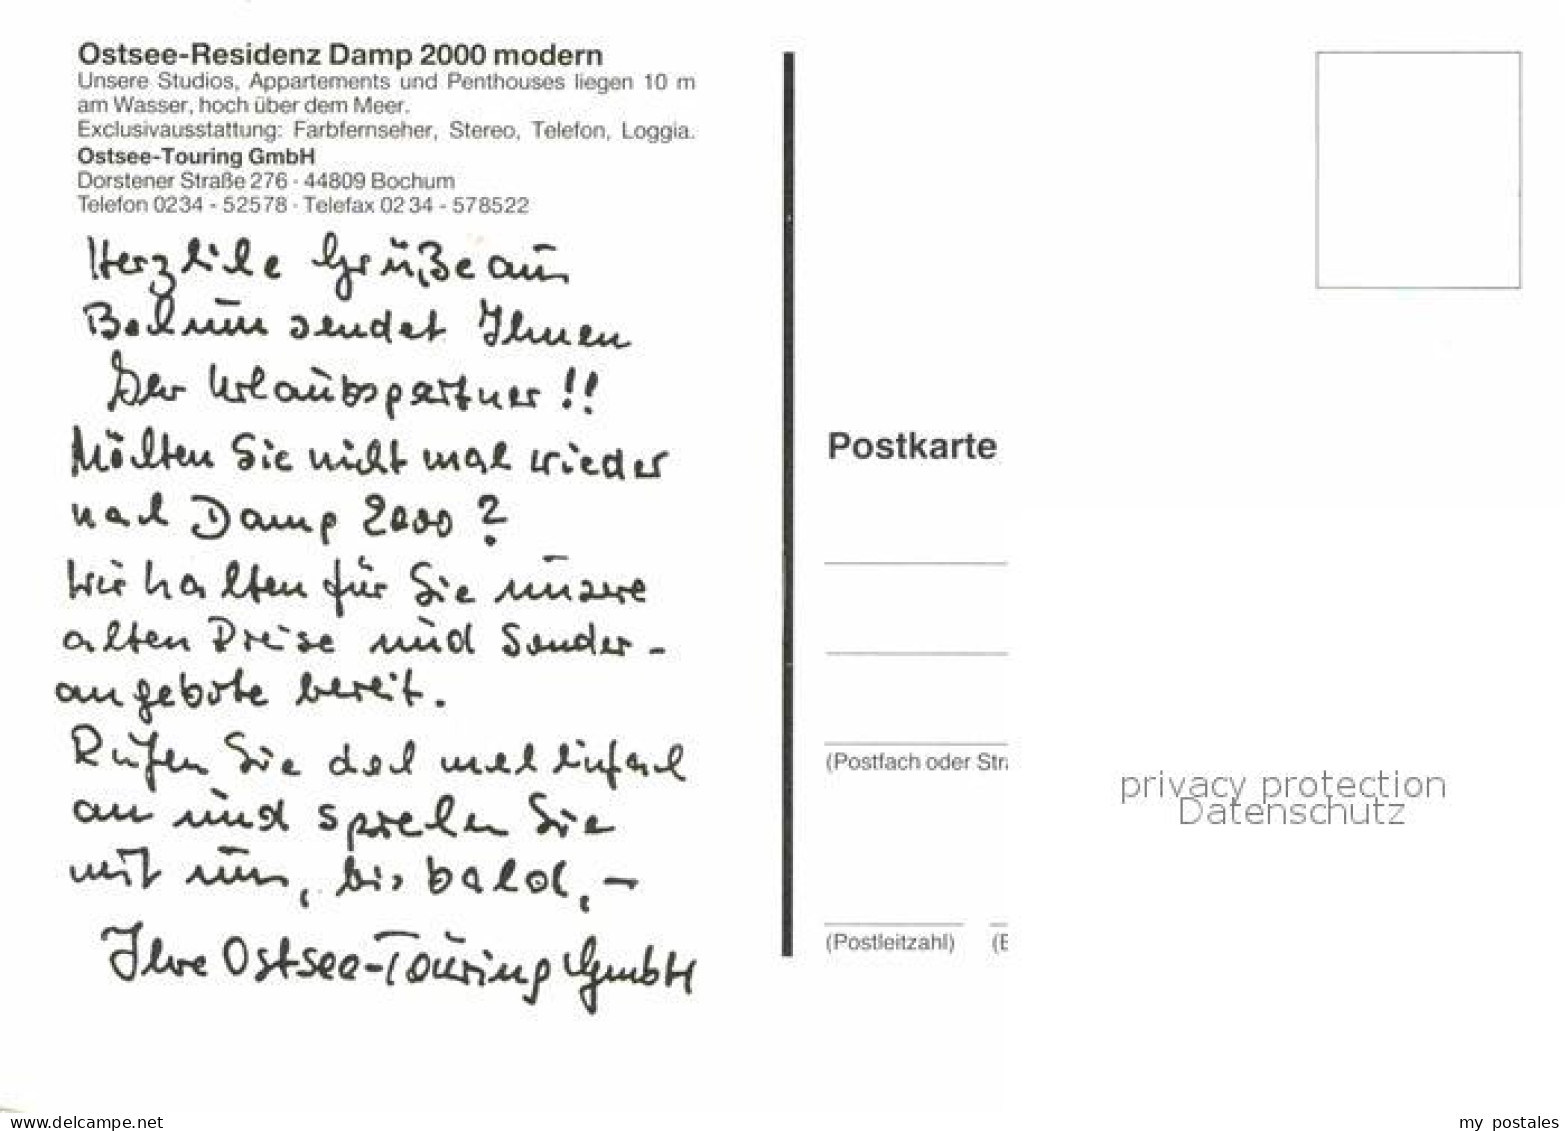 Ostsee-Residenz Damp 2000 modern
Unsere Studios, Appartements und Penthouses liegen 10 m
am Wasser, hoch über dem Meer.
Exclusivausstattung: Farbfernseher, Stereo, Telefon, Loggia.
Ostsee-Touring GmbH
Dorstener Straße 276 · 44809 Bochum
Telefon 0234 - 52578 · Telefax 02 34 - 578522
Herzliche Grüße aus
Bochum sendet Ihnen
Der Urlaubspartner!!
Möchten Sie nicht mal wieder
nach Damp 2000?
Wir halten für Sie unsere
alten Preise und Sonder-
angebote bereit.
Rufen Sie doch mal einfach
an und sprechen Sie
mit uns, bis bald, -
Ihre Ostsee-Touring GmbH
Postkarte
(Postfach oder Stra
(Postleitzahl) (B
privacy protection
Datenschutz
www.delcampe.net
my_postales